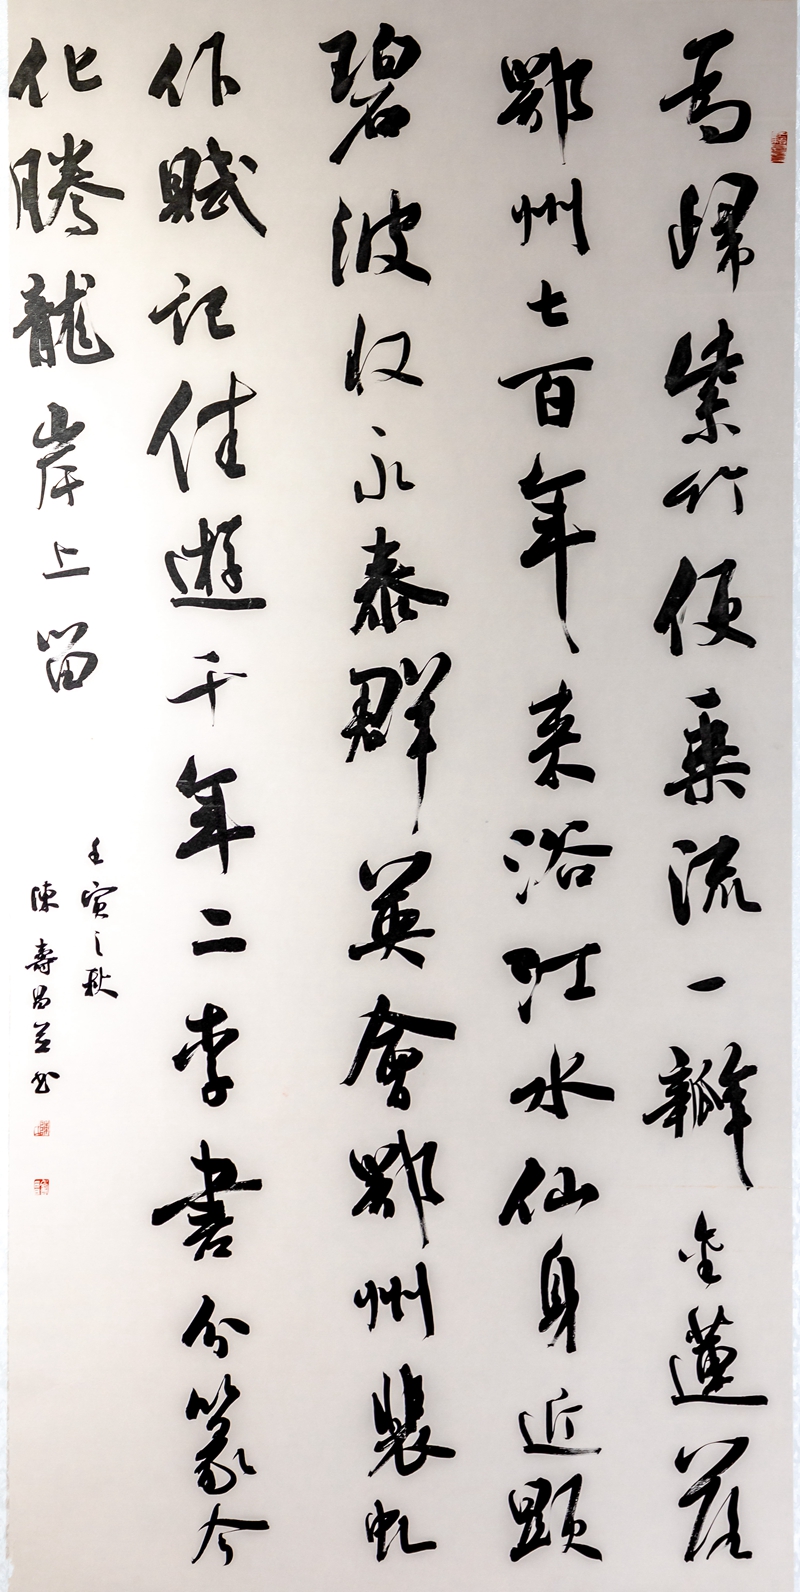 焉歸紫竹便乘流一瓣金蓮落
鄂州七百年来浴江水仙身近顯
碧波收永泰群英會鄂州裴虬
作賦記佳遊千年二李書分篆今
化騰龍岸上留
壬寅之秋
陳壽昌並書